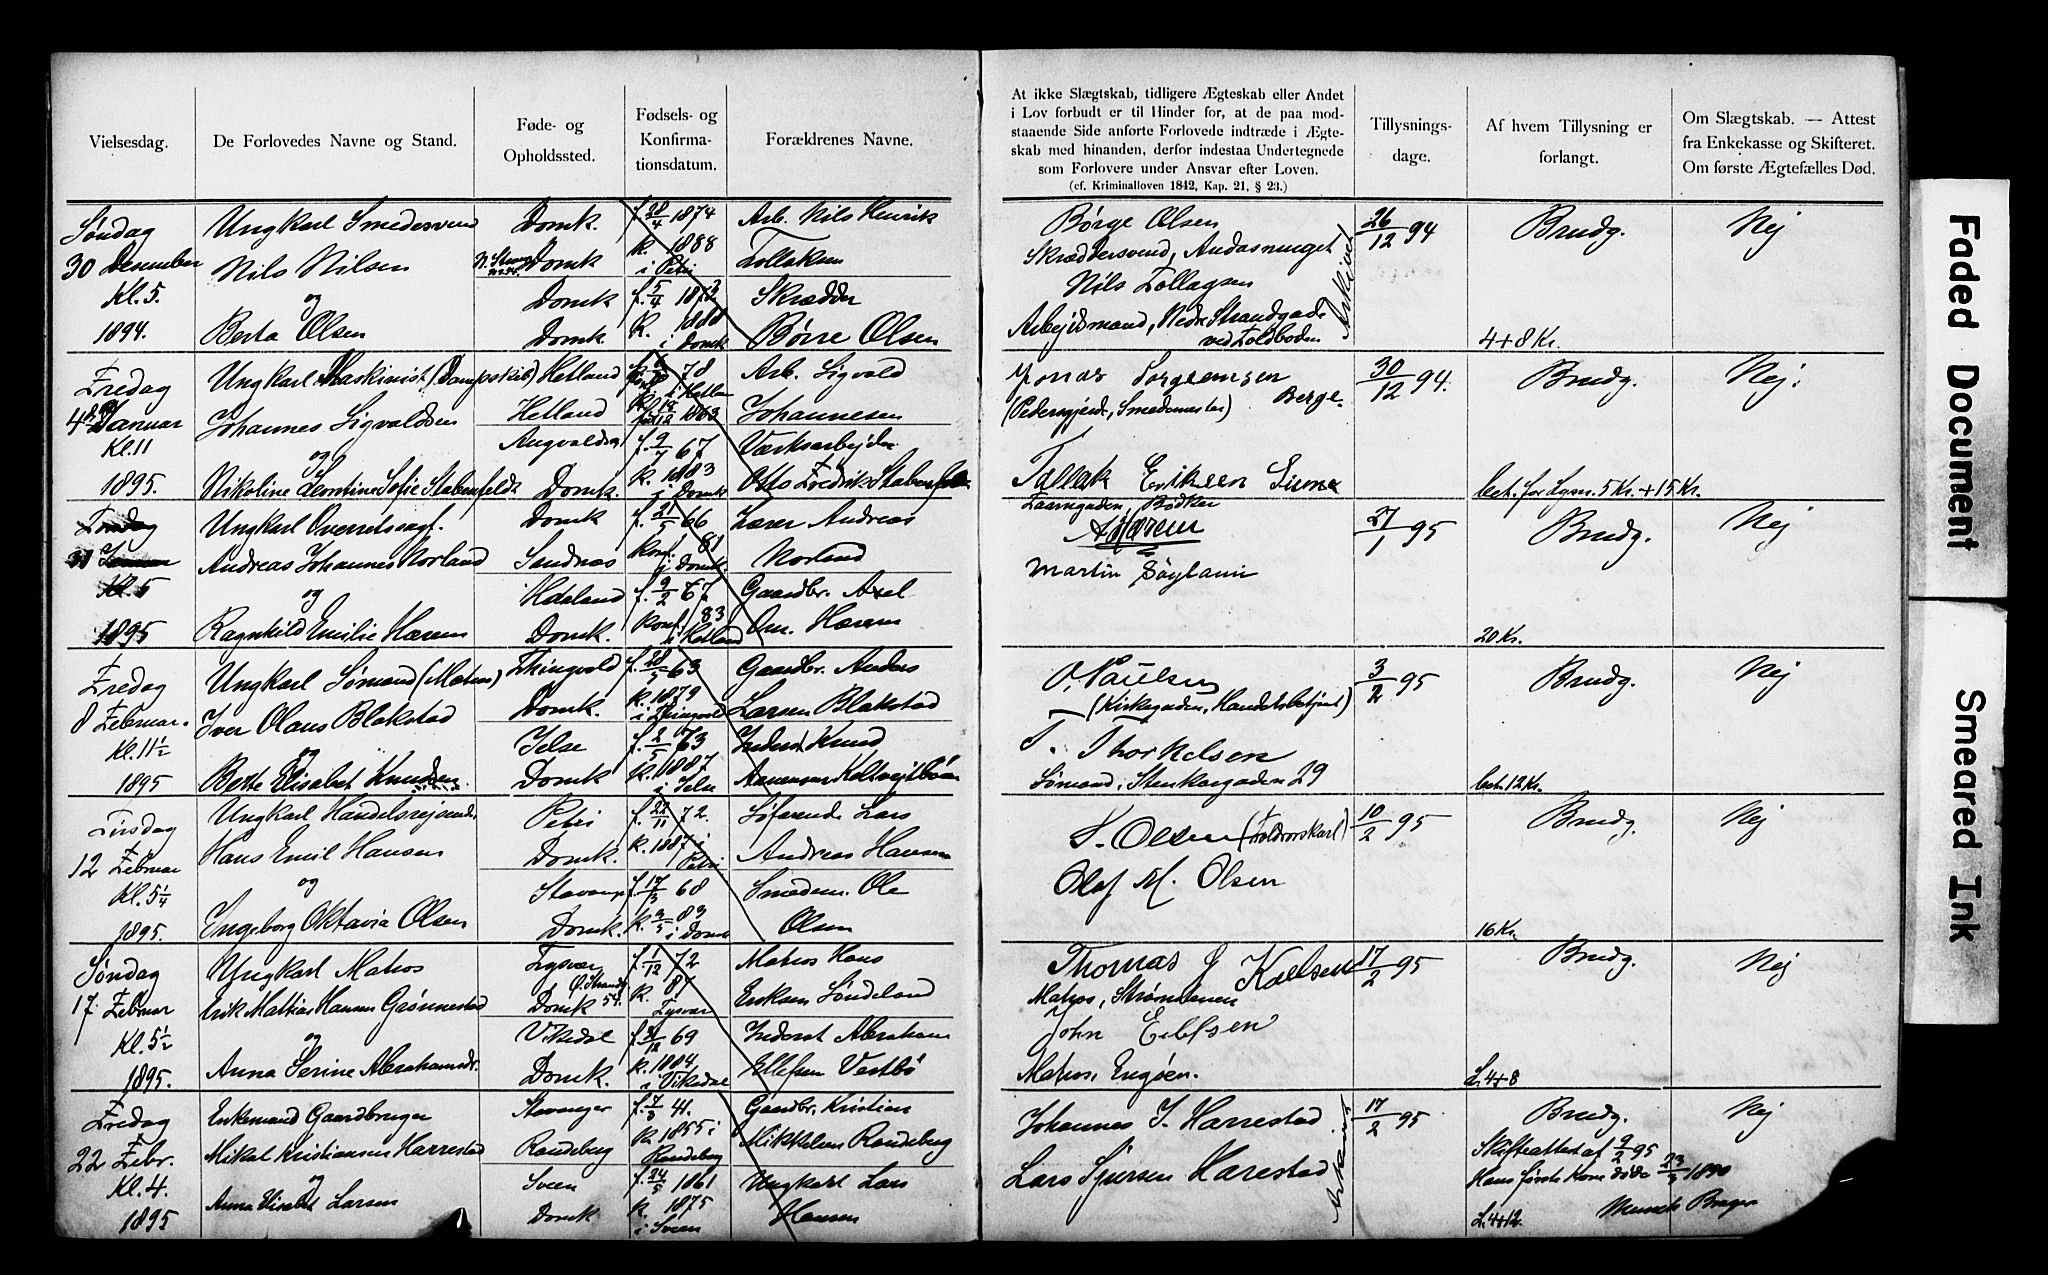 Vielsesdag.
De Forlovedes Navne og Stand.
Føde- og
Opholdssted.
Fødsels- og
Konfirma-
tionsdatum.
Forældrenes Navne.
At ikke Slægtskab, tidligere Ægteskab eller Andet
i Lov forbudt er til Hinder for, at de paa mod-
staaende Side anførte Forlovede indtræde i Ægte-
skab med hinanden, derfor indestaa Undertegnede
som Forlovere under Ansvar efter Loven.
(cf. Kriminalloven 1842, Kap. 21, § 23.)
Tillysnings-
dage.
Af hvem Tillysning er
forlangt.
Om Slægtskab. — Attest
fra Enkekasse og Skifteret.
Om første Ægtefælles Død.
Søndag
30 Desember
Kl. 5.
1894.
Ungkarl Smedesvend
Nils Nilsen
og
Berta Olsen
Domk.
Domk
Domk
Domk.
f. 28/4 1874
k. 1888
i Petri
f. 5/4 1873
k. 1888
i Domk
Arb. Nils Henrik
Tollaksen
Skrædder
Børre Olsen
Børge Olsen
Skræddersvend,
Nils Tollagsen
Arbejdsmand, Nedre Strandgade
ved Toldboden
26/12 94
Brudg.
4+8 Kr.
Nej
Fredag
4 Januar
Kl. 11
1895.
Ungkarl Maskinist (Dampskib)
Johannes Sigvaldsen
og
Nikoline Leontine Sofie Stabenfeldt
Hetland
Hetland
Domk.
78
f. 9/7 67
k. 1883
i Domk
Arb. Sigvald
Johannesen
Værksarbejder
Otto Fredrik
Jonas Berge
(Pedersgjerdt, Smedemester)
Tallak Eriksen
Bødker
30/12 94.
Brudg.
bet. for Lysn. 5 Kr. + 15 Kr.
Nej.
Kl. 5
1895
Ungkarl Overretssagf.
Andreas Johannes Norland
og
Ragnhild Emilie Hærem
Domk
Sandnæs
Domk.
f. 21/5 66
Konf. 81
i Domk
f. 9/2 67
Konf. 83
i Hetland
Lærer Andreas
Norland
Gaardbr. Axel
Om. Hærem
A Hærem
Martin Søyland
27/1 95
Brudg.
20 Kr.
Nej
Fredag
8 Februar.
Kl. 11½
1895
Ungkarl Sømand (Matros)
Iver Olaus Blakstad
og
Berte Elisabet Knudsen
Thingvold
Domk.
Jelse
Domk
f. 28/5 63
k. 1879
i Thingvold
f. 2/5 63
k. 1887
i Jelse
Gaardbr. Anders
Larsen Blakstad
Inderst Knud
O. Paulsen
(Kirkegaden, Handelsbetjent)
T. Thorkelsen
Sømand, Stenkargaden 29
3/2 95
Brudg.
bet. 12 Kr.
Nej
Tirsdag
12 Februar
Kl. 5¼
1895.
Ungkarl Handelsrejsende
Hans Emil Hansen
og
Ingeborg Oktavia Olsen
Petri
Domk.
Stavanger
Domk.
f. 27/11 72.
k. 1887 i
Petri
f. 17/3 68
k. 3/5 83
i Domk
Søfarende Lars
Andreas Hansen
Smedem. Ole
Olsen
Olsen (Toldrorskarl)
Olaf M. Olsen
10/2 95
Brudg.
16 Kr.
Nej
Søndag
17 Februar
Kl. 5½
1895.
Ungkarl Matros
Erik Mathias Hansen Grønnestad
og
Anna Serine Abrahamsdt.
Tysvær
Ø. Strandg
Domk 54.
Vikedal
Domk.
f. /12 72
k. 87
Tysvær
69
k. 1884
i Vikedal
Matros Hans
Eriksen Søndeland
Inderst Abraham
Ellefsen Vestbø
Thomas J Karlsen
Matros, Strømstenen
John Eilifsen
Matros, Engøen.
17/2 95
Brudg.
L. 4+8
Nej
Fredag
22 Febr.
Kl. 4.
1895
Enkemand Gaardbruger
Mikal Kristiansen Harrestad
og
Anna Elisabet Larsen
Stavanger
Randeberg
Sveen
Domk
f. 7/3 41.
k. 1855 i
Randeberg
f. 24/5 1861
k. 1875
i Sveen
Gaardbr. Kristian
Mikkelsen Randeberg
Ungkarl Lars
Hansen
Johannes I. Harrestad
Lars Sjursen Harestad
17/2 95
Brudg.
Skifteattest af 9/2 95
Hans første Kone døde 23/3 1890
L. 4+12.
Nej
Faded Document
Smeared Ink